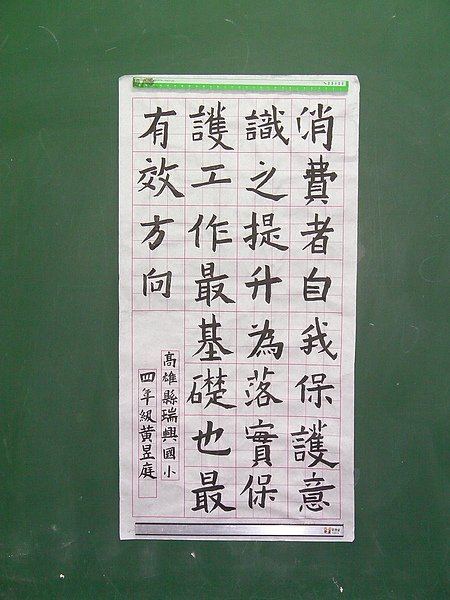 消費者自我保護意
識之提升為落實保
護工作最基礎也最
有效方向
高雄縣瑞興國小
四年級黃昱庭